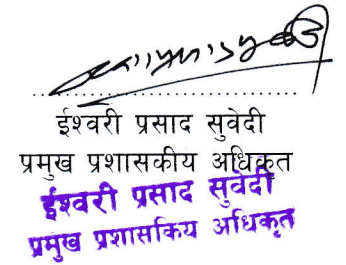 ईश्वरी प्रसाद सुवेदी
प्रमुख प्रशासकीय अधिकृत
ईश्वरी प्रसाद सुवेदी
प्रमुख प्रशासकिय अधिकृत